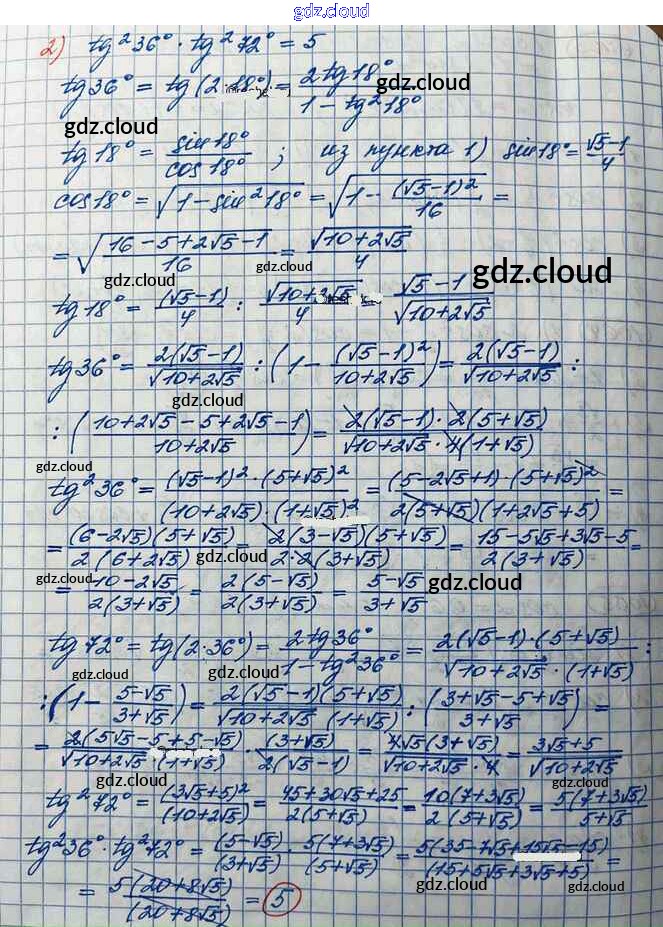 gdz.cloud
2) tg²36° · tg²72° = 5
tg36° = tg(2·18°) = 2tg18° / (1 - tg²18°)
gdz.cloud
gdz.cloud
tg18° = sin18° / cos18° ; из пункта 1) sin18° = (√5-1)/4
cos18° = √(1-sin²18°) = √(1 - (√5-1)²/16) =
gdz.cloud
= √((16-5+2√5-1)/16) = √(10+2√5)/4
gdz.cloud
gdz.cloud
gdz.cloud
tg18° = (√5-1)/4 : √(10+2√5)/4 = (√5-1)/√(10+2√5)
tg36° = 2(√5-1)/√(10+2√5) : (1 - (√5-1)²/(10+2√5)) = 2(√5-1)/√(10+2√5) :
gdz.cloud
: ((10+2√5-5+2√5-1)/(10+2√5)) = 2(√5-1)·2(5+√5) / (√(10+2√5)·4(1+√5))
gdz.cloud
tg²36° = (√5-1)²·(5+√5)² / ((10+2√5)·(1+√5)²) = (5-2√5+1)·(5+√5)² / (2(5+√5)(1+2√5+5)) =
= (6-2√5)(5+√5) / (2(6+2√5)) = 2(3-√5)(5+√5) / (2·2(3+√5)) = (15-5√5+3√5-5) / (2(3+√5)) =
gdz.cloud
gdz.cloud
= (10-2√5) / (2(3+√5)) = 2(5-√5) / (2(3+√5)) = (5-√5)/(3+√5)
gdz.cloud
tg72° = tg(2·36°) = 2tg36° / (1-tg²36°) = 2(√5-1)·(5+√5) / (√(10+2√5)·(1+√5)) :
gdz.cloud
gdz.cloud
: (1 - (5-√5)/(3+√5)) = 2(√5-1)(5+√5) / (√(10+2√5)(1+√5)) : ((3+√5-5+√5)/(3+√5)) =
= 2(5√5-5+5-√5) / (√(10+2√5)·(1+√5)) · (3+√5) / (2(√5-1)) = 4√5(3+√5) / (√(10+2√5)·4) = (3√5+5)/√(10+2√5)
gdz.cloud
gdz.cloud
tg²72° = (3√5+5)²/(10+2√5) = (45+30√5+25)/(2(5+√5)) = 10(7+3√5)/(2(5+√5)) = 5(7+3√5)/(5+√5)
tg²36°·tg²72° = (5-√5)/(3+√5) · 5(7+3√5)/(5+√5) = 5(35-7√5+15√5-15)/(15+5√5+3√5+5) =
gdz.cloud
gdz.cloud
= 5(20+8√5)/(20+8√5) = 5